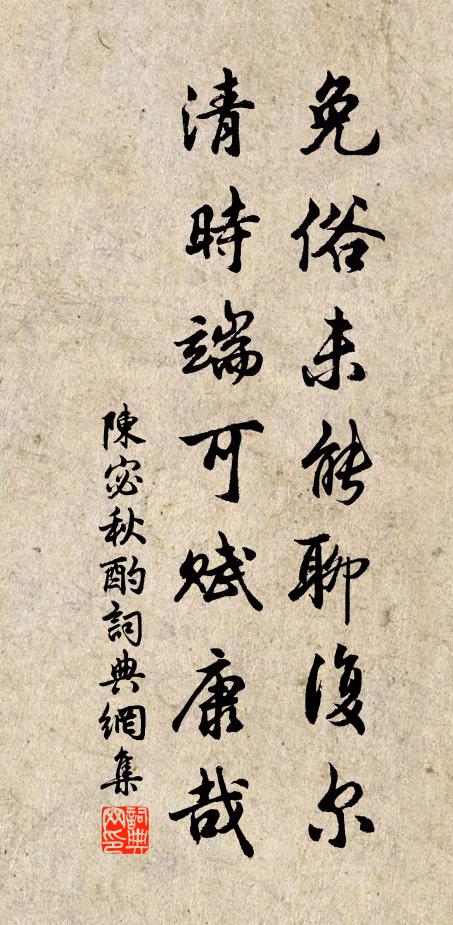 免俗未能聊復尔
清時端可賦康哉
陳宓秋酌詞典網集
詞典網印